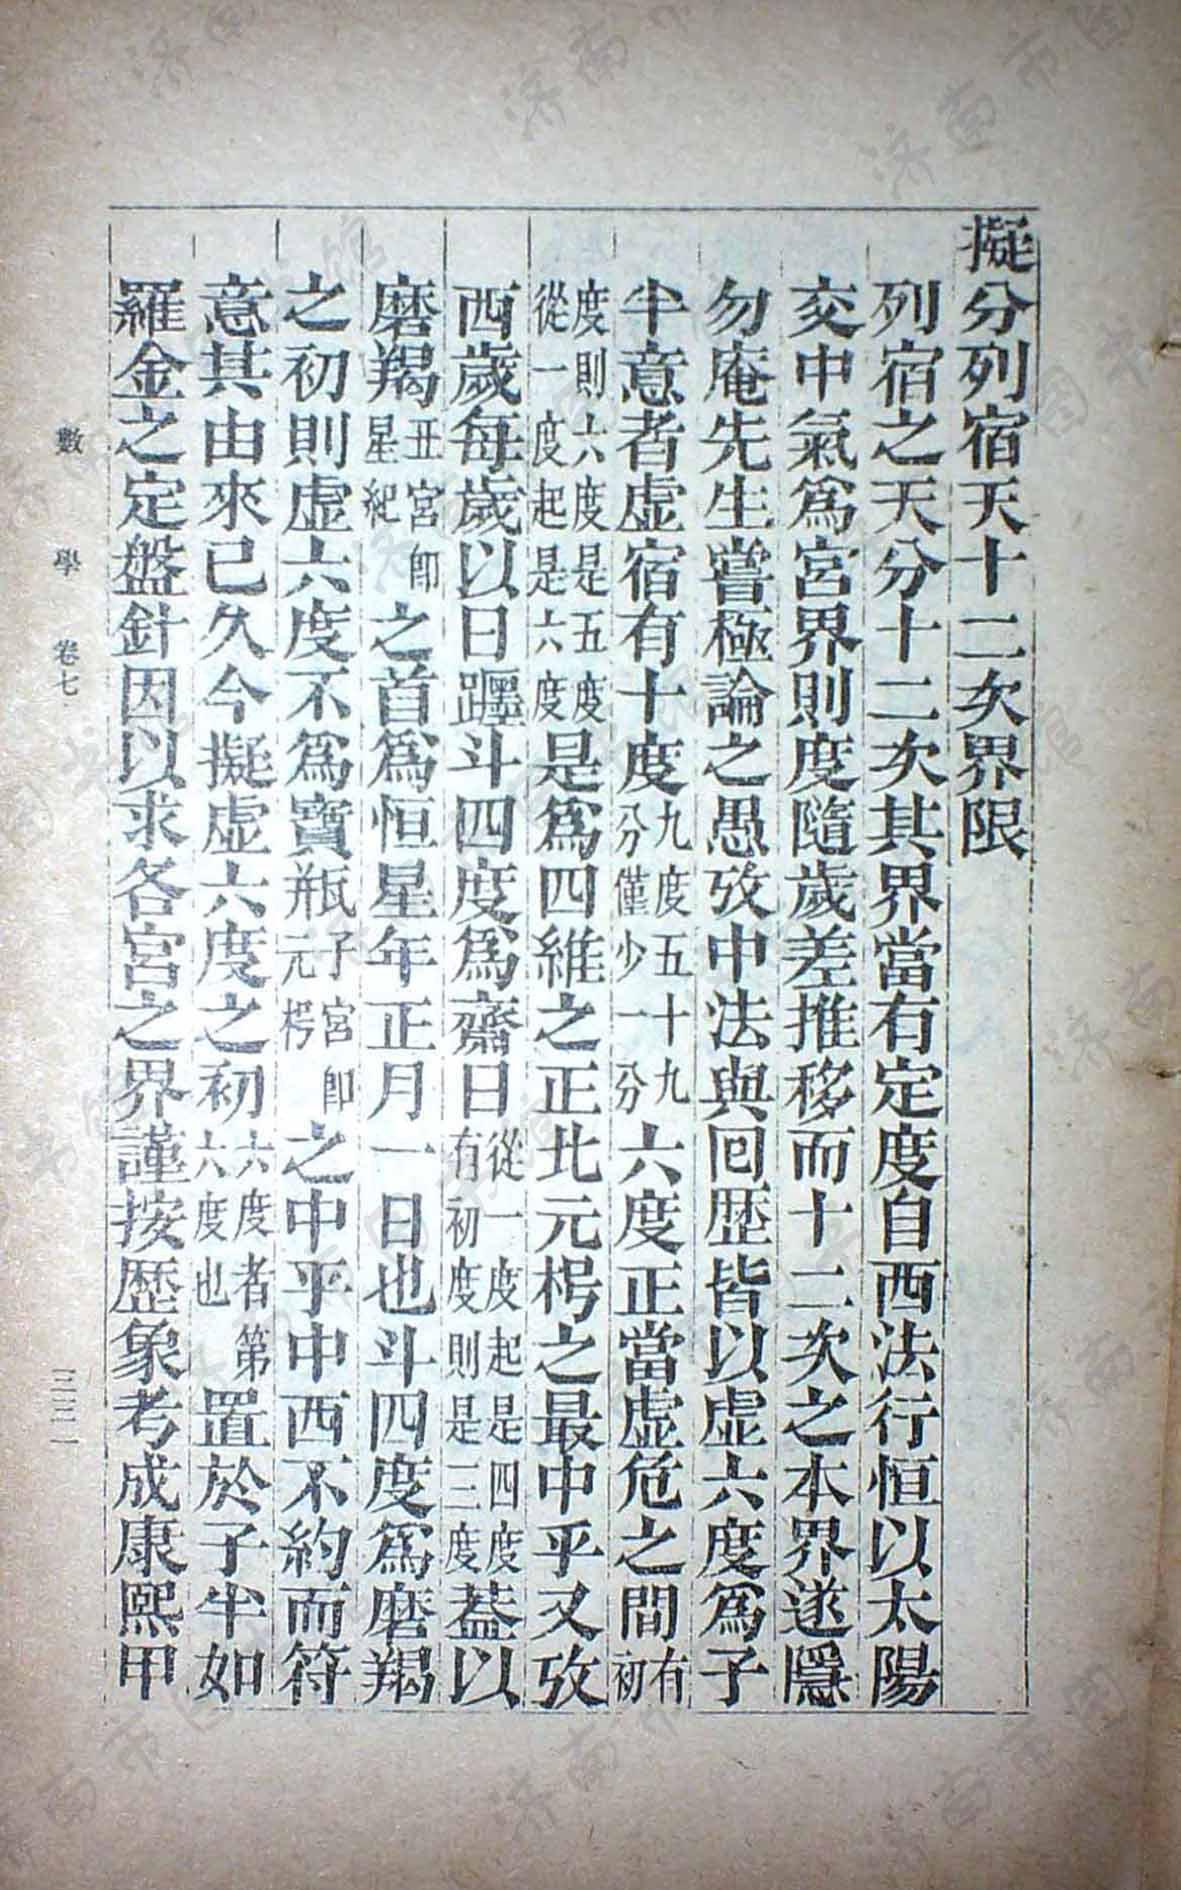 擬分列宿天十二次界限
列宿之天分十二次其界當有定度自西法行恒以太陽
交中氣爲宮界則度隨歲差推移而十二次之本界遂隱
勿庵先生嘗極論之愚攷中法與回歴皆以虛六度爲子
半意者虛宿有十度九度五十九分僅少一分六度正當虛危之間有初
度則六度是五度從一度起是六度是爲四維之正北元枵之最中乎又攷
西歲每歲以日躔斗四度爲齋日從一度起是四度有初度則是三度葢以
磨羯丑宮卽星紀之首爲恒星年正月一日也斗四度爲磨羯
之初則虛六度不爲寶瓶子宮卽元枵之中乎中西不約而符
意其由來已久今擬虛六度之初六度者第六度也置於子半如
羅金之定盤針因以求各宮之界謹按歴象考成康熙甲
數學 卷七
二三一
济南市图书馆